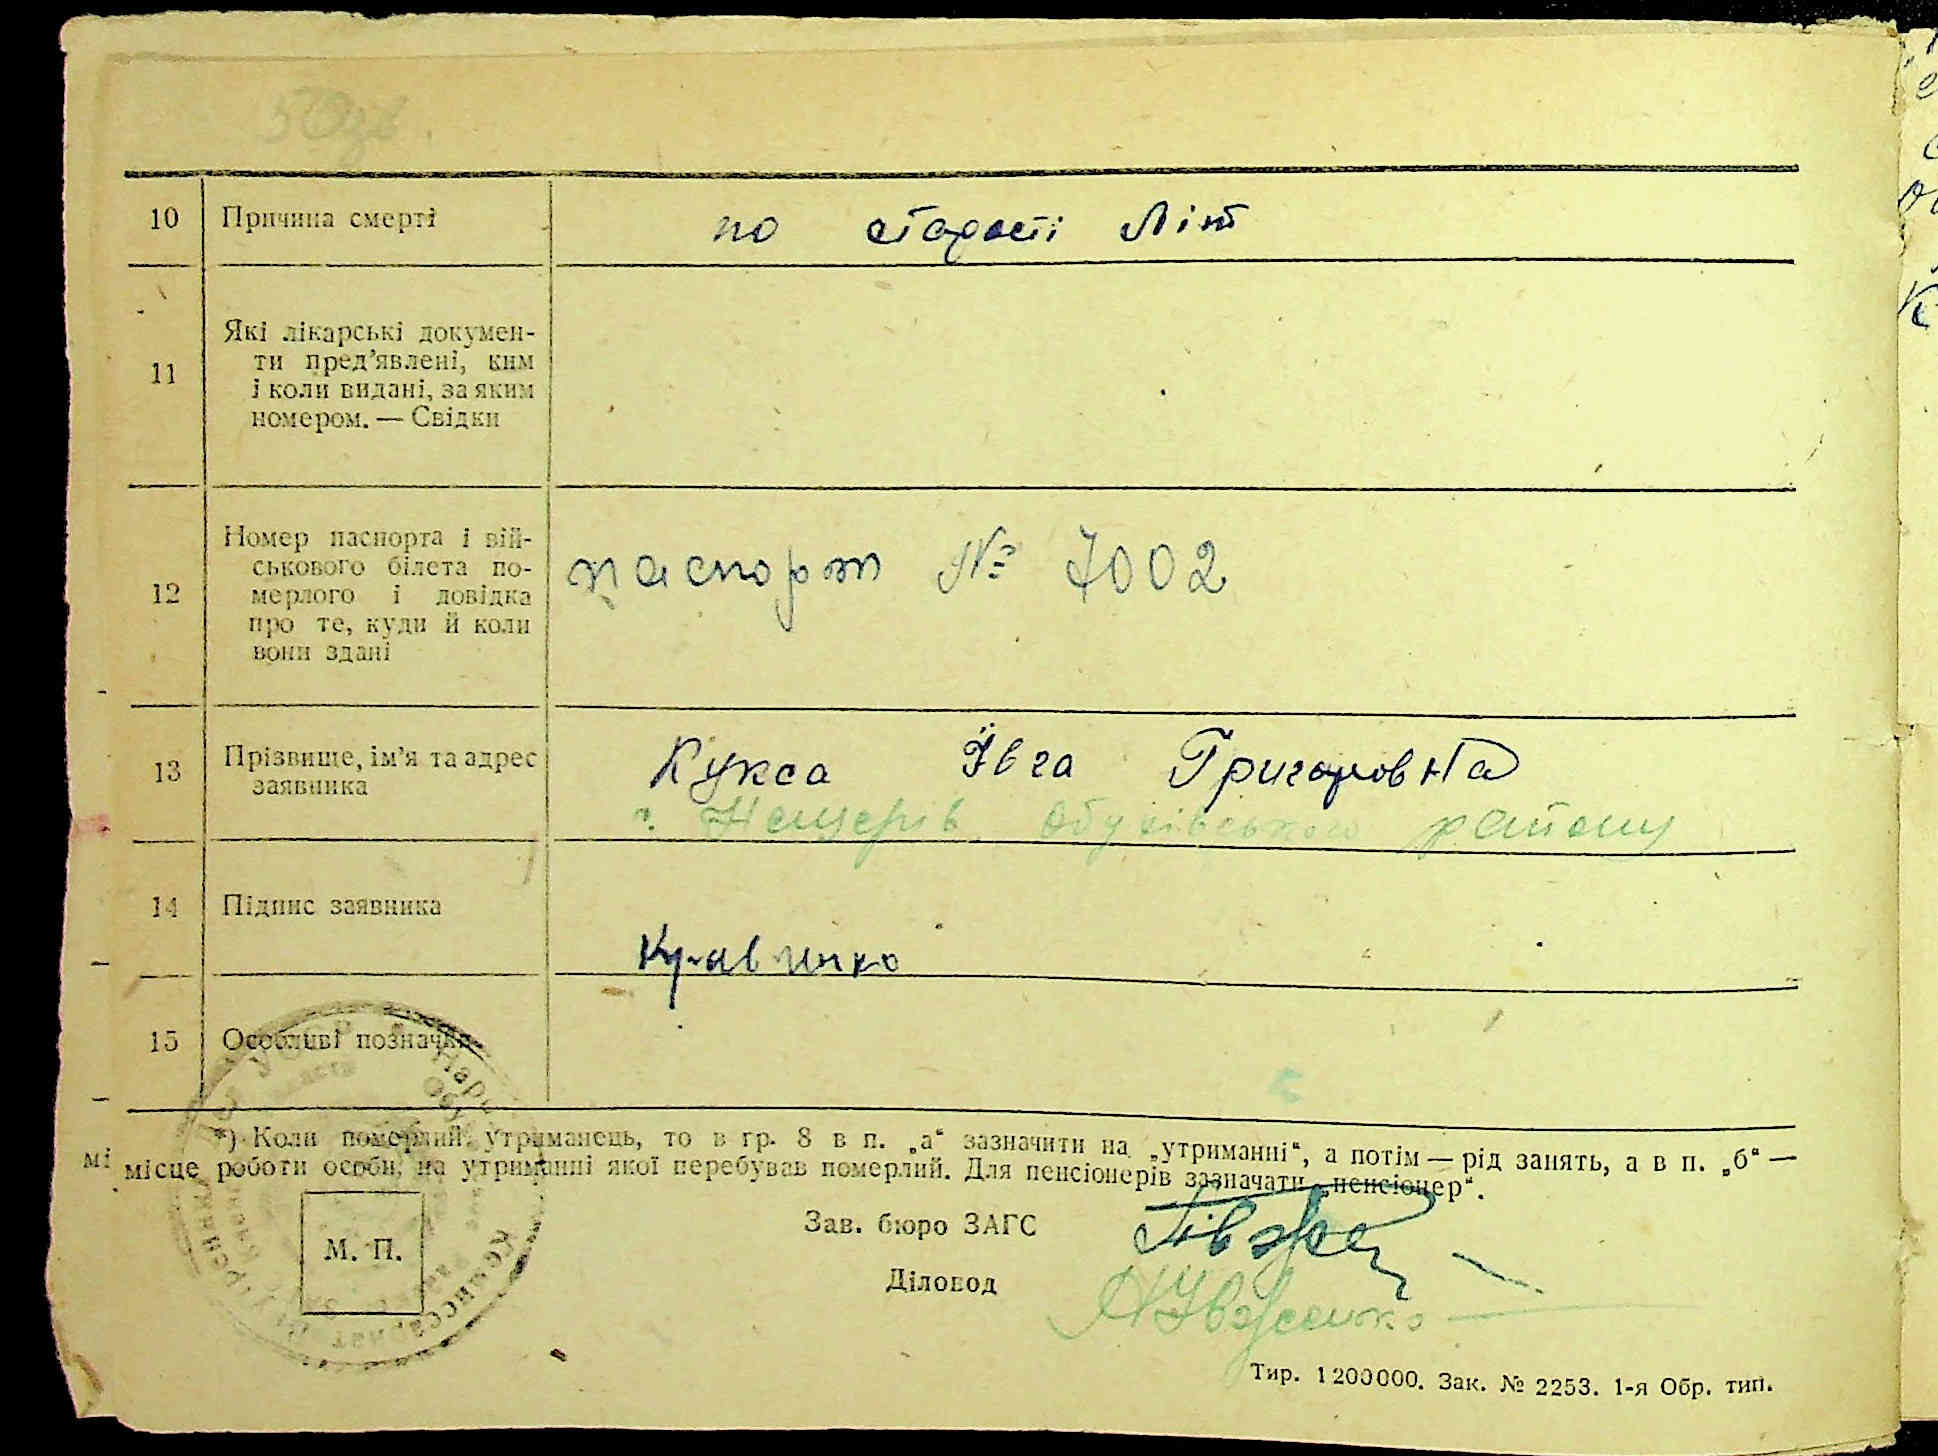 10 Причина смерті по старості літ
11 Які лікарські докумен-
ти пред’явлені, ким
і коли видані, за яким
номером. — Свідки
12 Номер паспорта і вій-
ськового білета по-
мерлого і довідка
про те, куди й коли
вони здані
паспорт № 7002
13 Прізвище, ім’я та адрес
заявника
Кукса Ївга Григоровна
Нещерів Обухівського району
14 Підпис заявника
15 Особливі позначки
*) Коли померлий утриманець, то в гр. 8 в п. „а“ зазначити на „утриманні“, а потім — рід занять, а в п. „б“ —
мі місце роботи особи, на утриманні якої перебував померлий. Для пенсіонерів зазначати „пенсіонер“.
М. П.
Зав. бюро ЗАГС
Діловод
Тир. 1200000. Зак. № 2253. 1-я Обр. тип.